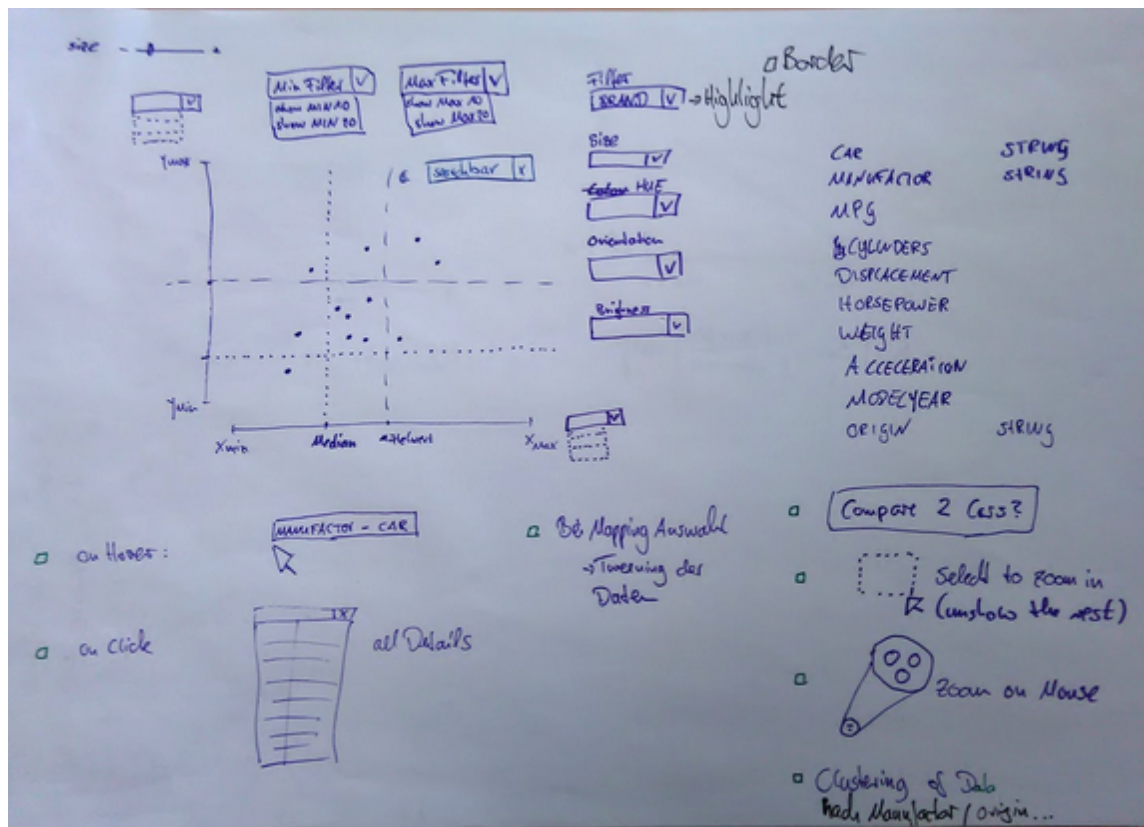 size
Min Filter V
show MIN 10
show MIN 20
Max Filter V
show Max 10
show Max 20
Filter
BRAND V → Highlight
Border
Size
V
Color HUE
V
Orientation
V
Brightness
V
Ymax
Searchbar x
Ymin
Xmin
Median
Xmax
CAR STRING
MANUFACTOR STRING
MPG
CYLINDERS
DISPLACEMENT
HORSEPOWER
WEIGHT
ACCELERATION
MODELYEAR
ORIGIN STRING
on Hover:
MANUFACTOR - CAR
on Click
X
all Details
Bei Mapping Auswahl
→ Tweening der
Daten
Compare 2 Cars?
Select to zoom in
(unshow the rest)
Zoom on Mouse
Clustering of Data
nach Manufactor / origin...